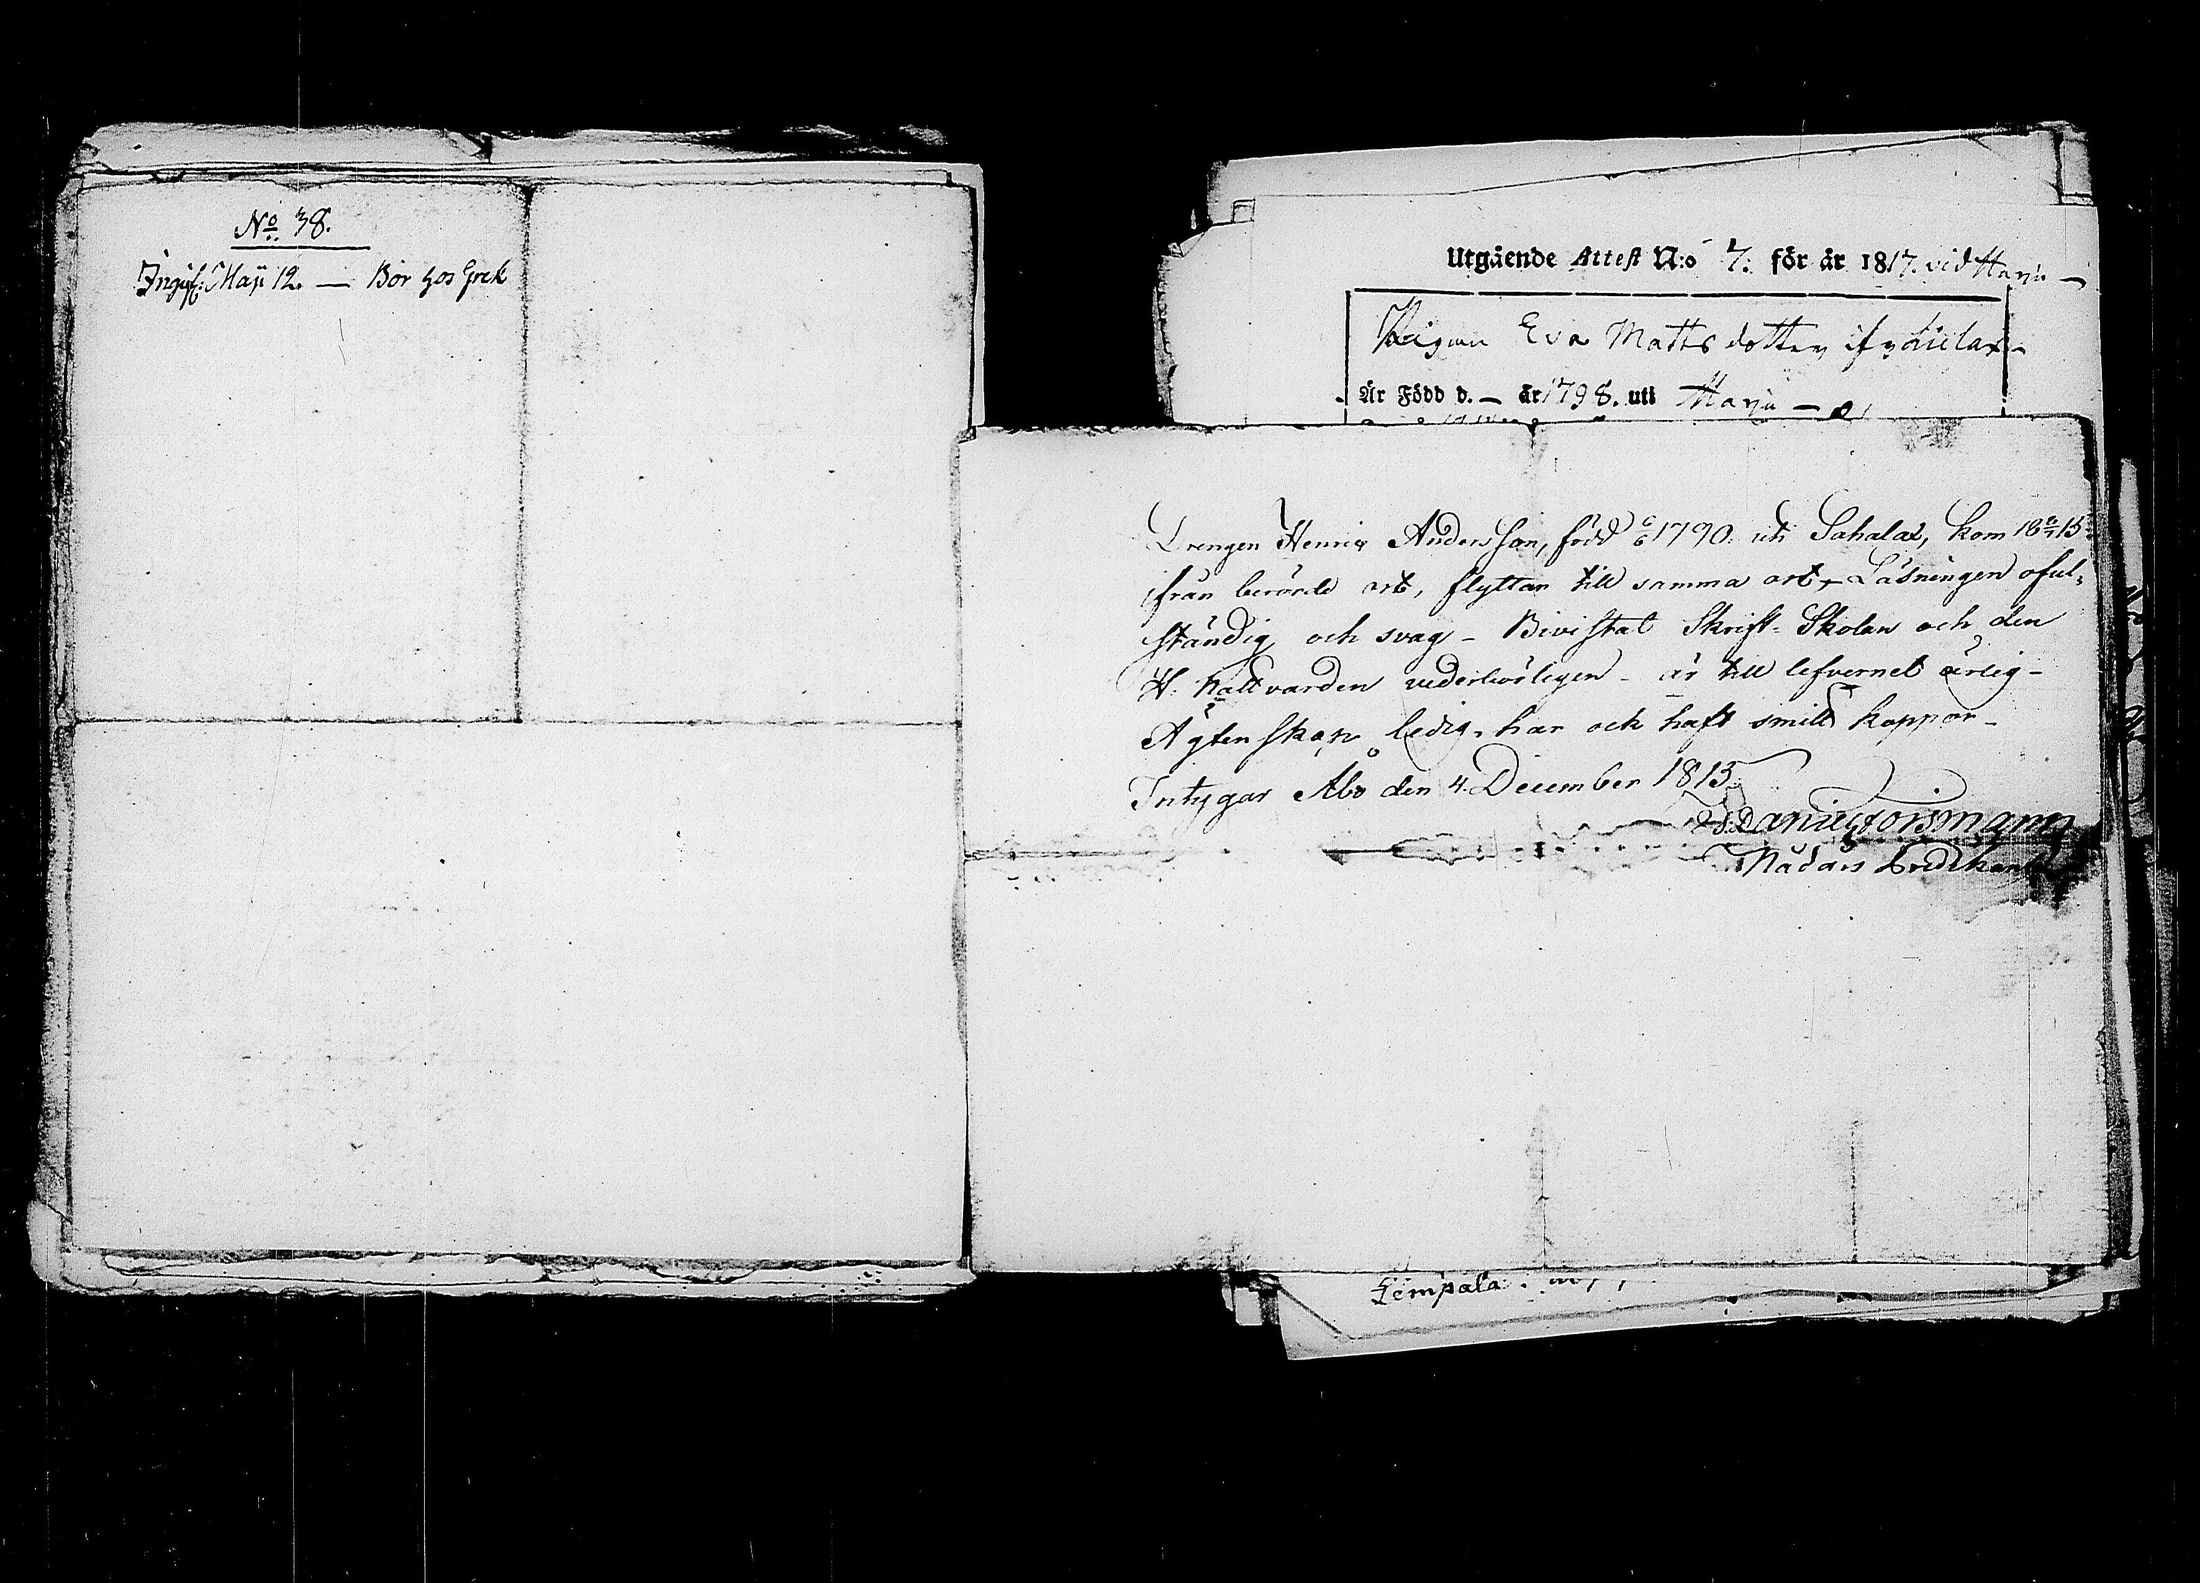 No 38.
Ingif: Maji 12. — Bör hos Grek
Utgående Attest N:o 7. för år 1817. vid Harju —
Pigan Eva Mattsdotter if
Är Född d. — år 1798. uti Harju —
Drengen Henric Andersson, född 6/6 1790. uti Sahalax, kom 18 15
ifrån berörde ort, flyttar till samma ort - Läsningen oful-
ständig och svag - Bivistat Skrift-Skolan och den
H. Nattvarden vederbörligen - är till lefvernet ärlig -
Ägtenskap ledig, har och haft smitt koppor -
Intygar Åbo den 4. December 1815.
Daniel Forsmann
Nådårs Predikant
Lempälä